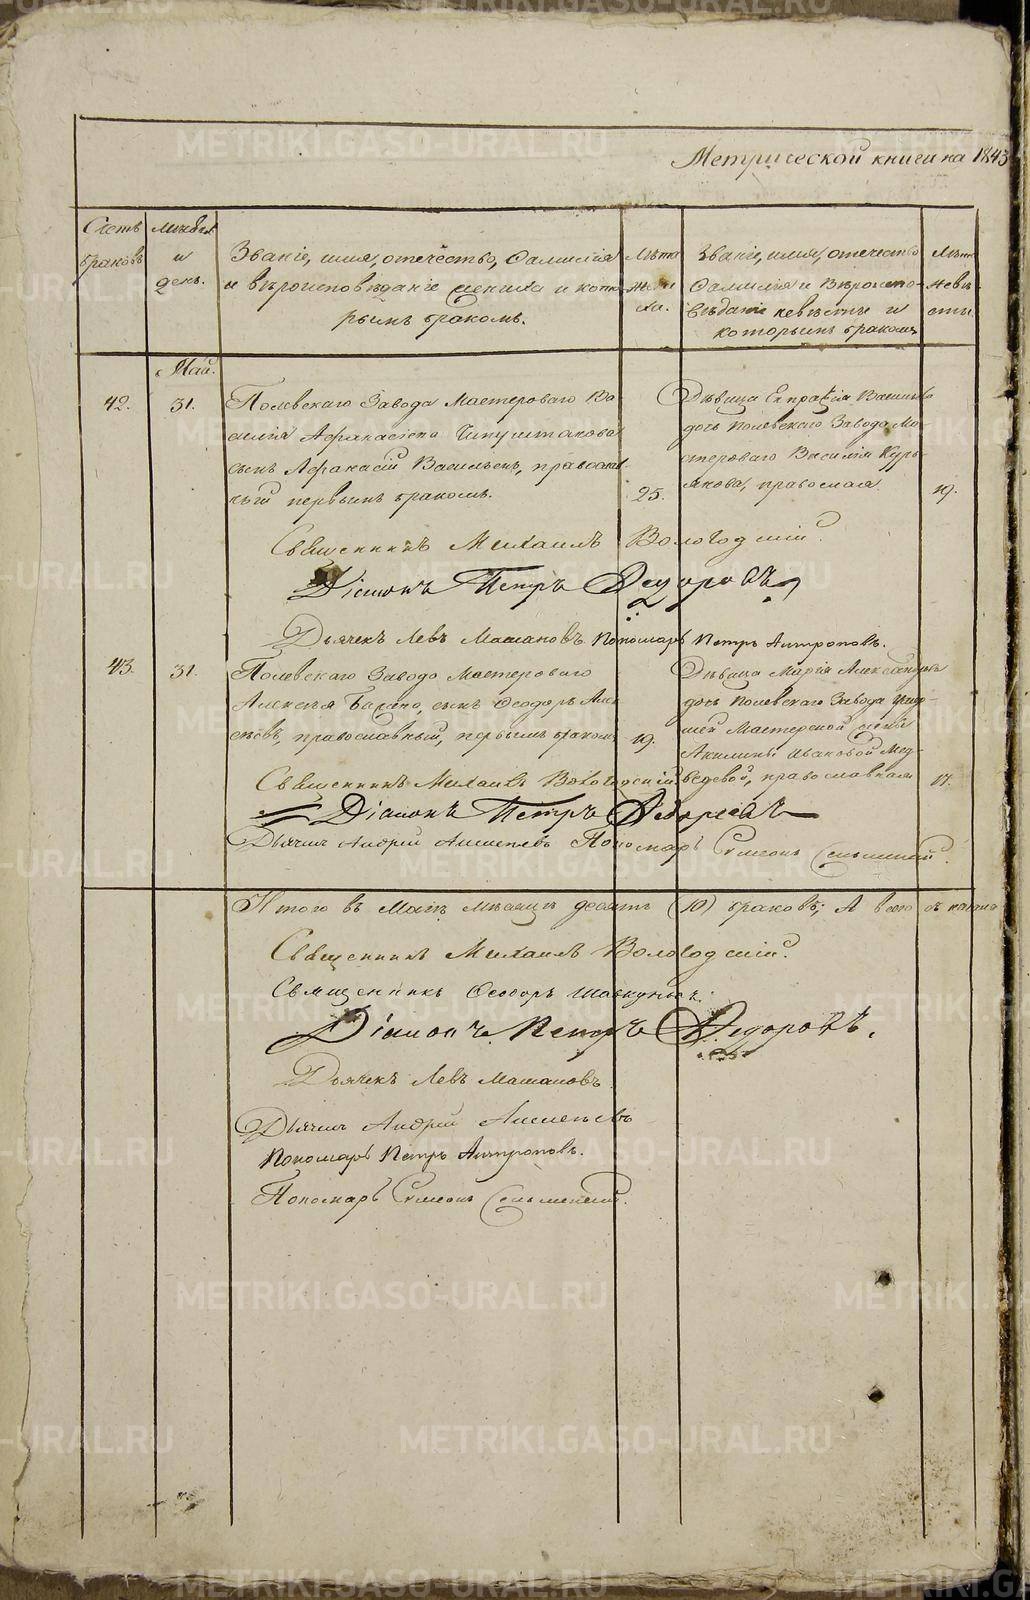 Метрической книги на 1843
Счетъ браковъ
Месяцъ и день.
Званіе, имя, отечество, Фамилія
и вѣроисповѣданіе жениха и кото
рымъ бракомъ.
Лѣта
жени
ха.
Званіе, имя, отечество
Фамилія и Вѣроиспо-
вѣданіе невѣсты и
которымъ бракомъ
Лѣта
невѣ-
сты.
Май.
42.
31.
Полевскаго Завода Мастероваго Ва-
силія Афанасіева
сынъ Афанасій Васильевъ, православ
ный первымъ бракомъ.
25.
Дѣвица Евпраксія Васильева
дочь Полевскаго Завода Ма-
стероваго Василія Курь-
якова, православная
19.
Священникъ Михаилъ Вологодскій.
Діаконъ Петръ Федоровъ
Дьячекъ Левъ Пономарь Петръ Антроповъ.
43.
31.
Полевскаго Завода Мастероваго
Алексѣя сынъ Феодоръ Алек
сѣевъ, православный, первымъ бракомъ
19.
Дѣвица Марія Александрова
дочь Полевскаго Завода
Мастерской
Акилины Ивановой Мед-
ведевой, православная
17.
Священникъ Михаилъ Вологодскій
Діаконъ Петръ Федоровъ
Дьячекъ Андрей Пономарь Симеонъ
Итого въ Маѣ мѣсяцѣ десять (10) браковъ; А всего съ начала
Священникъ Михаилъ Вологодскій.
Священникъ Феодоръ
Діаконъ Петръ Федоровъ.
Дьячекъ Левъ
Дьячекъ Андрей
Пономарь Петръ Антроповъ.
Пономарь Симеонъ
METRIKI.GASO-URAL.RU